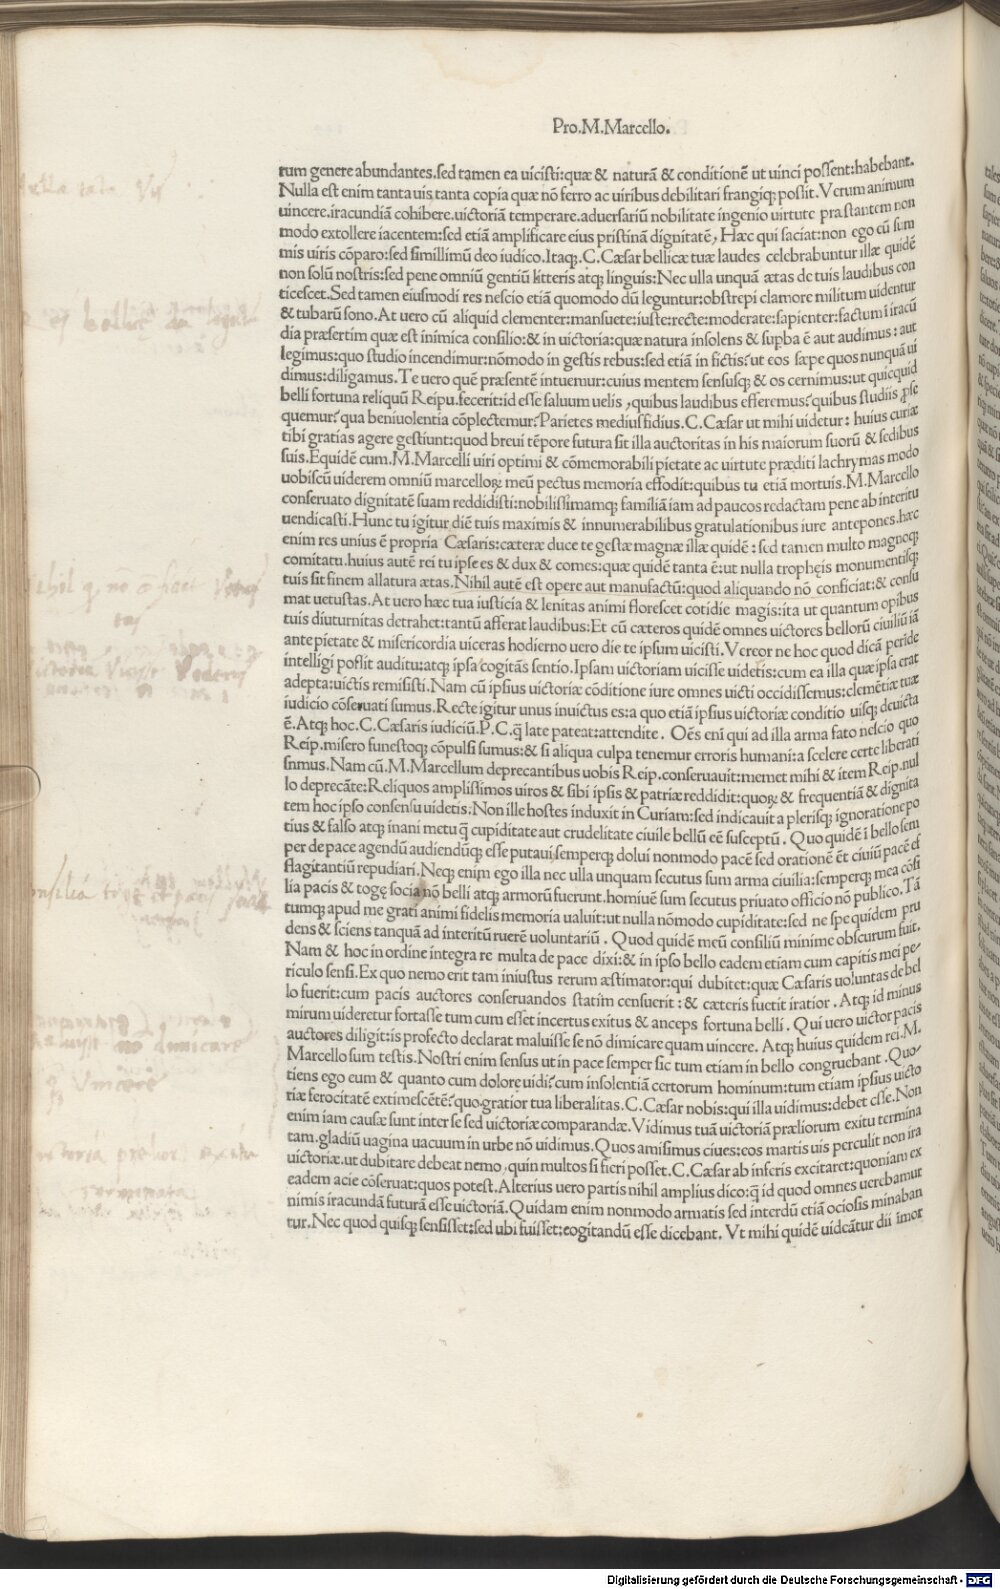 Pro.M.Marcello.
rum genere abundantes.sed tamen ea uicisti:quæ & naturā & conditionē ut uinci possent:habebant.
Nulla est enim tanta uis tanta copia quæ nō ferro ac uiribus debilitari frangiq; possit.Verum animum
uincere.iracundiā cohibere.uictoriā temperare.aduersariū nobilitate ingenio uirtute præstantem non
modo extollere iacentem:sed etiā amplificare eius pristinā dignitatē, Hæc qui faciat:non ego cū sum
mis uiris cōparo:sed simillimū deo iudico.Itaq;.C.Cæsar bellicæ tuæ laudes celebrabuntur illæ quidē
non solū nostris:sed pene omniū gentiū litteris atq; linguis:Nec ulla unquā ætas de tuis laudibus con
ticescet.Sed tamen eiusmodi res nescio etiā quomodo dū leguntur:obstrepi clamore militum uidentur
& tubarū sono.At uero cū aliquid clementer:mansuete:iuste:recte:moderate:sapienter:factum ī iracū
dia præsertim quæ est inimica consilio:& in uictoria:quæ natura insolens & supba ē aut audimus: aut
legimus:quo studio incendimur:nōmodo in gestis rebus:sed etiā in fictis:ut eos sæpe quos nunquā ui
dimus:diligamus.Te uero quē præsentē intuemur:cuius mentem sensusq; & os cernimus:ut quicquid
belli fortuna reliquū Reipu.fecerit:id esse saluum uelis,quibus laudibus efferemus?quibus studiis pse
quemur?qua beniuolentia cōplectemur?Parietes mediusfidius.C.Cæsar ut mihi uidetur: huius curiæ
tibi gratias agere gestiunt:quod breui tēpore futura sit illa auctoritas in his maiorum suorū & sedibus
suis.Equidē cum.M.Marcelli uiri optimi & cōmemorabili pietate ac uirtute præditi lachrymas modo
uobiscū uiderem omniū marcelloꝝ meū pectus memoria effodit:quibus tu etiā mortuis.M.Marcello
conseruato dignitatē suam reddidisti:nobilissimamq; familiā iam ad paucos redactam pene ab interitu
uendicasti.Hunc tu igitur diē tuis maximis & innumerabilibus gratulationibus iure antepones.hæc
enim res unius ē propria Cæsaris:cæteræ duce te gestæ magnæ illæ quidē: sed tamen multo magnoq;
comitatu.huius autē rei tu ipse es & dux & comes:quæ quidē tanta ē:ut nulla trophęis monumentisq;
tuis sit finem allatura ætas.Nihil autē est opere aut manufactū:quod aliquando nō conficiat:& consu
mat uetustas.At uero hæc tua iusticia & lenitas animi florescet cotidie magis:ita ut quantum opibus
tuis diuturnitas detrahet:tantū afferat laudibus:Et cū cæteros quidē omnes uictores bellorū ciuiliū iā
ante pietate & misericordia uiceras hodierno uero die te ipsum uicisti.Vereor ne hoc quod dicā peride
intelligi possit auditu:atq; ipsa cogitās sentio.Ipsam uictoriam uicisse uideris:cum ea illa quæ ipsa erat
adepta:uictis remisisti.Nam cū ipsius uictoriæ cōditione iure omnes uicti occidissemus:clemētiæ tuæ
iudicio cōseruati sumus.Recte igitur unus inuictus es:a quo etiā ipsius uictoriæ conditio uisq; deuicta
ē.Atq; hoc.C.Cæsaris iudiciū.P.C.q̄ late pateat:attendite. Oēs enī qui ad illa arma fato nescio quo
Reip.misero funestoq; cōpulsi sumus:& si aliqua culpa tenemur erroris humani:a scelere certe liberati
sumus.Nam cū.M.Marcellum deprecantibus uobis Reip.conseruauit:memet mihi & item Reip.nul
lo deprecāte:Reliquos amplissimos uiros & sibi ipsis & patriæ reddidit:quoꝝ & frequentiā & dignita
tem hoc ipso consensu uidetis:Non ille hostes induxit in Curiam:sed indicauit a plerisq; ignoratione po
tius & falso atq; inani metu q̄ cupiditate aut crudelitate ciuile bellū eē susceptū. Quo quidē ī bello sem
per de pace agendū audiendūq; esse putaui,semperq; dolui nonmodo pacē sed orationē ēt ciuiū pacē ef
flagitantiū repudiari.Neq; enim ego illa nec ulla unquam secutus sum arma ciuilia:semperq; mea cōsi
lia pacis & togę socia nō belli atq; armorū fuerunt.hominē sum secutus priuato officio nō publico.Tā
tumq; apud me grati animi fidelis memoria ualuit:ut nulla nōmodo cupiditate:sed ne spe quidem pru
dens & sciens tanquā ad interitū ruerē uoluntariū. Quod quidē meū consiliū minime obscurum fuit.
Nam & hoc in ordine integra re multa de pace dixi:& in ipso bello eadem etiam cum capitis mei pe-
riculo sensi.Ex quo nemo erit tam iniustus rerum æstimator:qui dubitet:quæ Cæsaris uoluntas de bel
lo fuerit:cum pacis auctores conseruandos statim censuerit:& cæteris fuetit iratior. Atq; id minus
mirum uideretur fortasse tum cum esset incertus exitus & anceps fortuna belli. Qui uero uictor pacis
auctores diligit:is profecto declarat maluisse se nō dimicare quam uincere. Atq; huius quidem rei.M.
Marcello sum testis.Nostri enim sensus ut in pace semper sic tum etiam in bello congruebant.Quo-
tiens ego eum & quanto cum dolore uidi?cum insolentiā certorum hominum:tum etiam ipsius uicto
riæ ferocitatē extimescētē?quo.gratior tua liberalitas.C.Cæsar nobis:qui illa uidimus:debet esse.Non
enim iam causæ sunt inter se sed uictoriæ comparandæ.Vidimus tuā uictoriā præliorum exitu termina
tam.gladiū uagina uacuum in urbe nō uidimus.Quos amisimus ciues:eos martis uis perculit non ira
uictoriæ.ut dubitare debeat nemo,quin multos si fieri posset.C.Cæsar ab inferis excitaret:quoniam ex
eadem acie cōseruat:quos potest.Alterius uero partis nihil amplius dico:q̄ id quod omnes uerebamur
nimis iracundā futurā esse uictoriā.Quidam enim nonmodo armatis sed interdū etiā ociosis minaban
tur.Nec quod quisq; sensisset:sed ubi fuisset:cogitandū esse dicebant. Vt mihi quidē uideātur dii imor
Digitalisierung gefördert durch die Deutsche Forschungsgemeinschaft - DFG